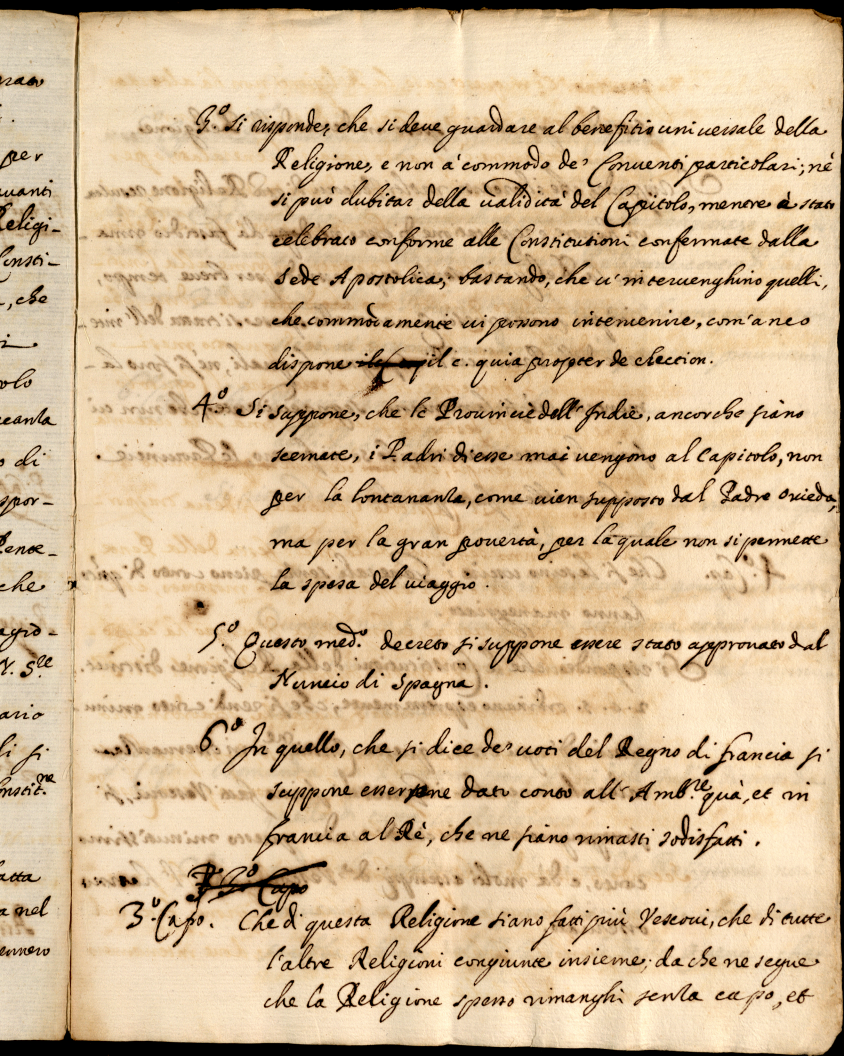 3.º Si risponde, che si deve guardare al benefitio universale della
Religione, e non à commodo de' Conventi particolari; nè
si può dubitar della validità del Capitolo, mentre è stato
celebrato conforme alle Constitutioni confermate dalla
Sede Apostolica; bastando, che v'intervenghino quelli,
che commodamente vi possono intervenire, com'anco
dispone il c. quia propter de election.
4.º Si suppone, che le Provincie dell'Indie, ancorche siano
scemate, i Padri di esse mai vengono al Capitolo, non
per la lontananza, come vien supposto dal Padre Ovieda,
ma per la gran povertà, per la quale non si permette
la spesa del viaggio.
5.º Questo med.º decreto si suppone essere stato approvato dal
Nuncio di Spagna.
6.º In quello, che si dice de' voti del Regno di francia si
suppone essersene dato conto all'Amb.re quà, et in
francia al Rè, che ne siano rimasti sodisfatti.
3.º Capo
3.º Capo. Che di questa Religione siano fatti più Vescovi, che di tutte
l'altre Religioni congiunte insieme; da che ne segue
che la Religione spesso rimanghi senza capo, et